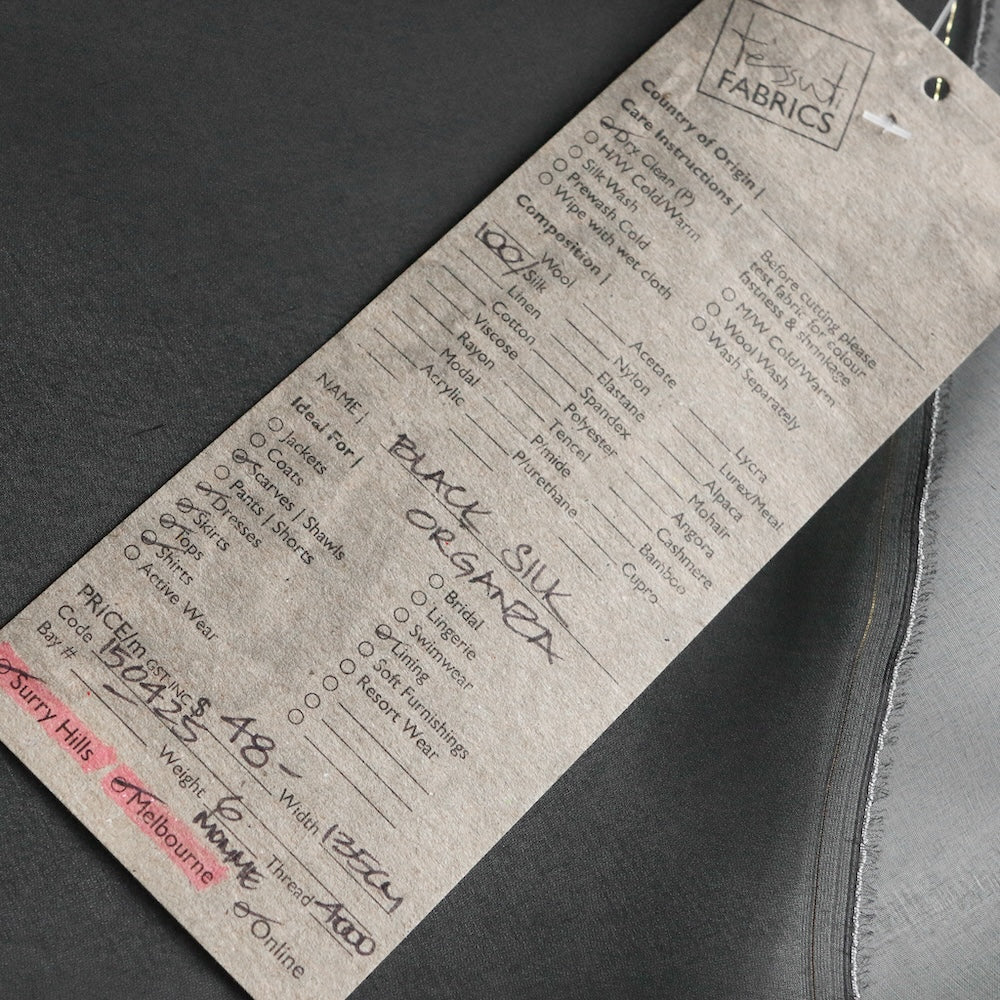 Tessuti
FABRICS
Country of Origin |
Care Instructions |
Dry Clean (P)
H/W Cold/Warm
Silk Wash
Prewash Cold
Wipe with wet cloth
Before cutting please
test fabric for colour
fastness & shrinkage
M/W Cold/Warm
Wool Wash
Wash Separately
Composition |
Wool
100/ Silk
Linen
Cotton
Viscose
Rayon
Modal
Acrylic
Acetate
Nylon
Elastane
Spandex
Polyester
Tencel
P/mide
P/urethane
Lycra
Lurex/Metal
Alpaca
Mohair
Angora
Cashmere
Bamboo
Cupro
NAME | BLACK SILK
ORGANZA
Ideal For |
Jackets
Coats
Scarves | Shawls
Pants | Shorts
Dresses
Skirts
Tops
Shirts
Active Wear
Bridal
Lingerie
Swimwear
Lining
Soft Furnishings
Resort Wear
PRICE/m GST INC $ 48.-
Code 150425
Width 135cm
Bay #
Weight 6 MOMME
Thread 4000
Surry Hills
Melbourne
Online